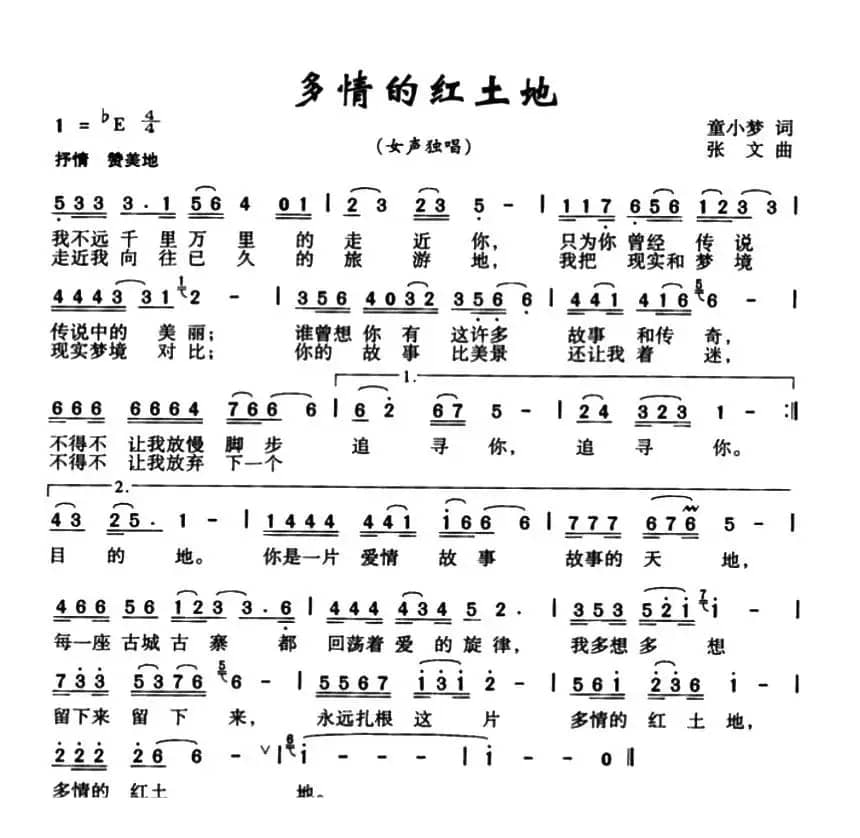 多情的红土地
1 = ♭E 4/4
(女声独唱)
童小梦 词
张 文 曲
抒情 赞美地
5 3 3 3 · 1 5 6 4 0 1 | 2 3 2 3 5 - | 1 1 7 6 5 6 1 2 3 3 |
我不远 千 里 万 里 的 走 近 你, 只为你 曾经 传 说
走近我 向 往 已 久 的 旅 游 地, 我把 现实和 梦 境
4 4 4 3 3 1 1 2 - | 3 5 6 4 0 3 2 3 5 6 6 | 4 4 1 4 1 6 5 6 - |
传说中的 美 丽; 谁曾想 你 有 这许多 故事 和传 奇,
现实梦境 对 比; 你的 故 事 比美景 还让我 着 迷,
6 6 6 6 6 6 4 7 6 6 6 | 6 2 6 7 5 - | 2 4 3 2 3 1 - :‖
1.
不得不 让我放慢 脚 步 追 寻 你, 追 寻 你。
不得不 让我放弃 下一个
2.
4 3 2 5 · 1 - | 1 4 4 4 4 4 1 1 6 6 6 | 7 7 7 6 7 6 5 - |
目 的 地。 你是一片 爱情 故 事 故事的 天 地,
4 6 6 5 6 1 2 3 3 · 6 | 4 4 4 4 3 4 5 2 · | 3 5 3 5 2 1 7 1 - |
每一座 古城 古 寨 都 回荡着 爱 的 旋 律, 我多想 多 想
7 3 3 5 3 7 6 5 6 - | 5 5 6 7 1 3 1 2 - | 5 6 1 2 3 6 1 - |
留下来 留 下 来, 永远扎根 这 片 多情的 红 土 地,
2 2 2 2 6 6 - ∨ | 6 1 - - - | 1 - - 0 ‖
多情的 红土 地。